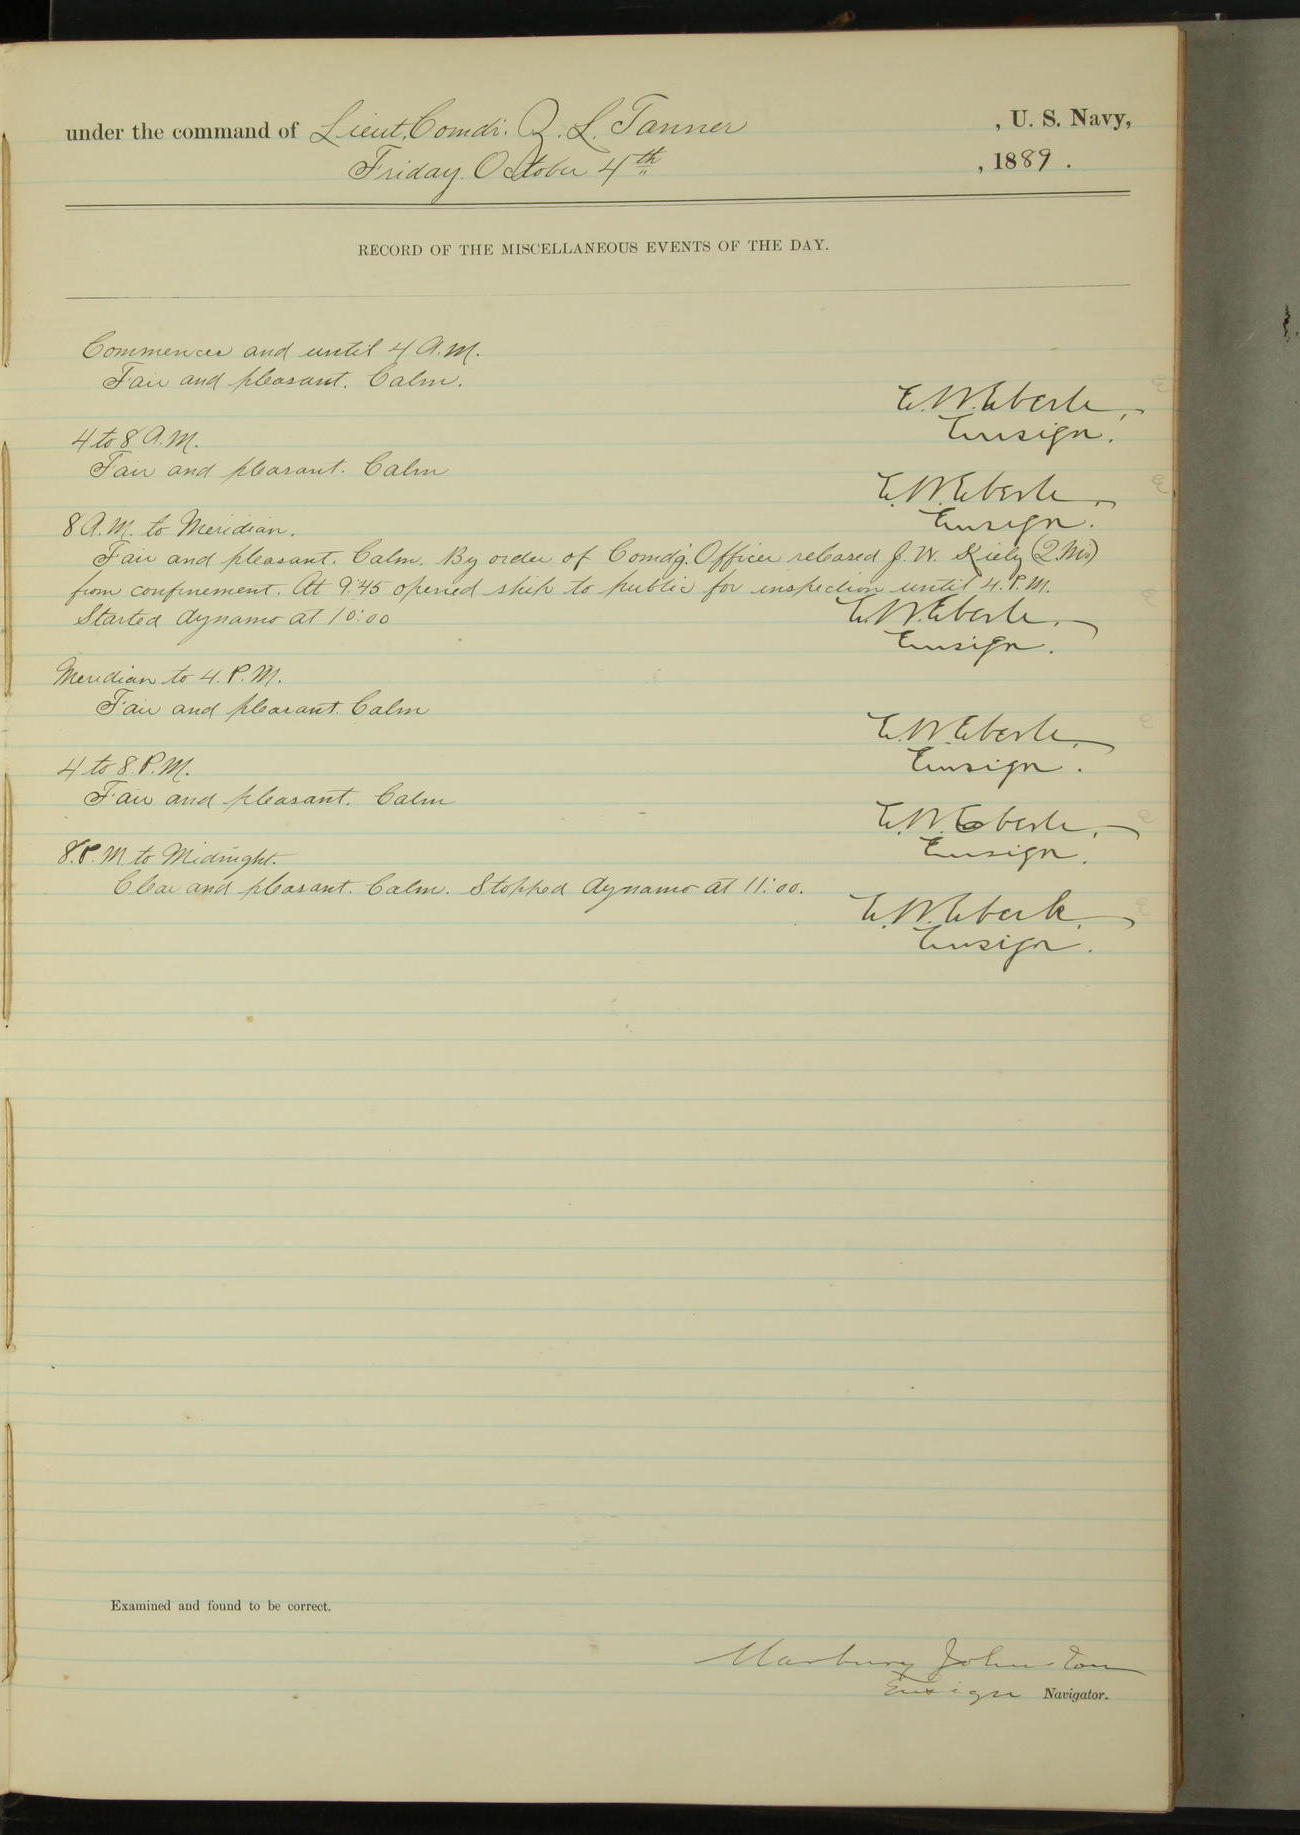 under the command of Lieut. Comdr. Z. L. Tanner , U. S. Navy,
Friday October 4th , 1889 .
RECORD OF THE MISCELLANEOUS EVENTS OF THE DAY.
Commences and until 4 A.M.
Fair and pleasant. Calm.
E. W. Eberle,
Ensign.
4 to 8 A.M.
Fair and pleasant. Calm
E. W. Eberle,
Ensign.
8 A.M. to Meridian.
Fair and pleasant. Calm. By order of Comdg. Officer released J. W. Kiely (Q.M.)
from confinement. At 9:45 opened ship to public for inspection until 4. P.M.
Started dynamo at 10:00
E. W. Eberle,
Ensign.
Meridian to 4. P.M.
Fair and pleasant. Calm
E. W. Eberle,
Ensign.
4 to 8 P.M.
Fair and pleasant. Calm
E. W. Eberle,
Ensign.
8. P.M. to Midnight.
Clear and pleasant. Calm. Stopped dynamo at 11:00.
E. W. Eberle,
Ensign.
Examined and found to be correct.
Marbury Johnston
Ensign Navigator.